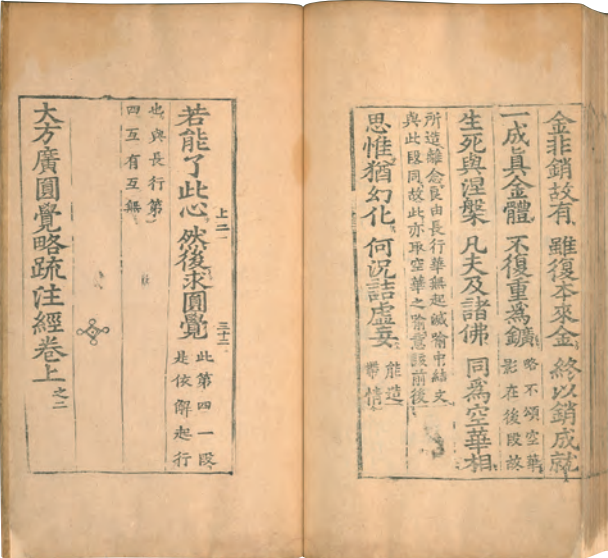 金非銷故有 雖復本來金 終以銷成就
一成眞金體 不復重爲鑛 略不頌空華
影在後段故
生死與涅槃 凡夫及諸佛 同爲空華相
所造離念良由長行華無起滅喻中結文
與此段同故此亦取空華之喻意該前後
思惟猶幻化 何況詰虛妄 能造
帶情
上二
三十二
若能了此心 然後求圓覺 此第四一段
是依解起行
也與長行第
四互有互無
大方廣圓覺略疏注經卷上之二